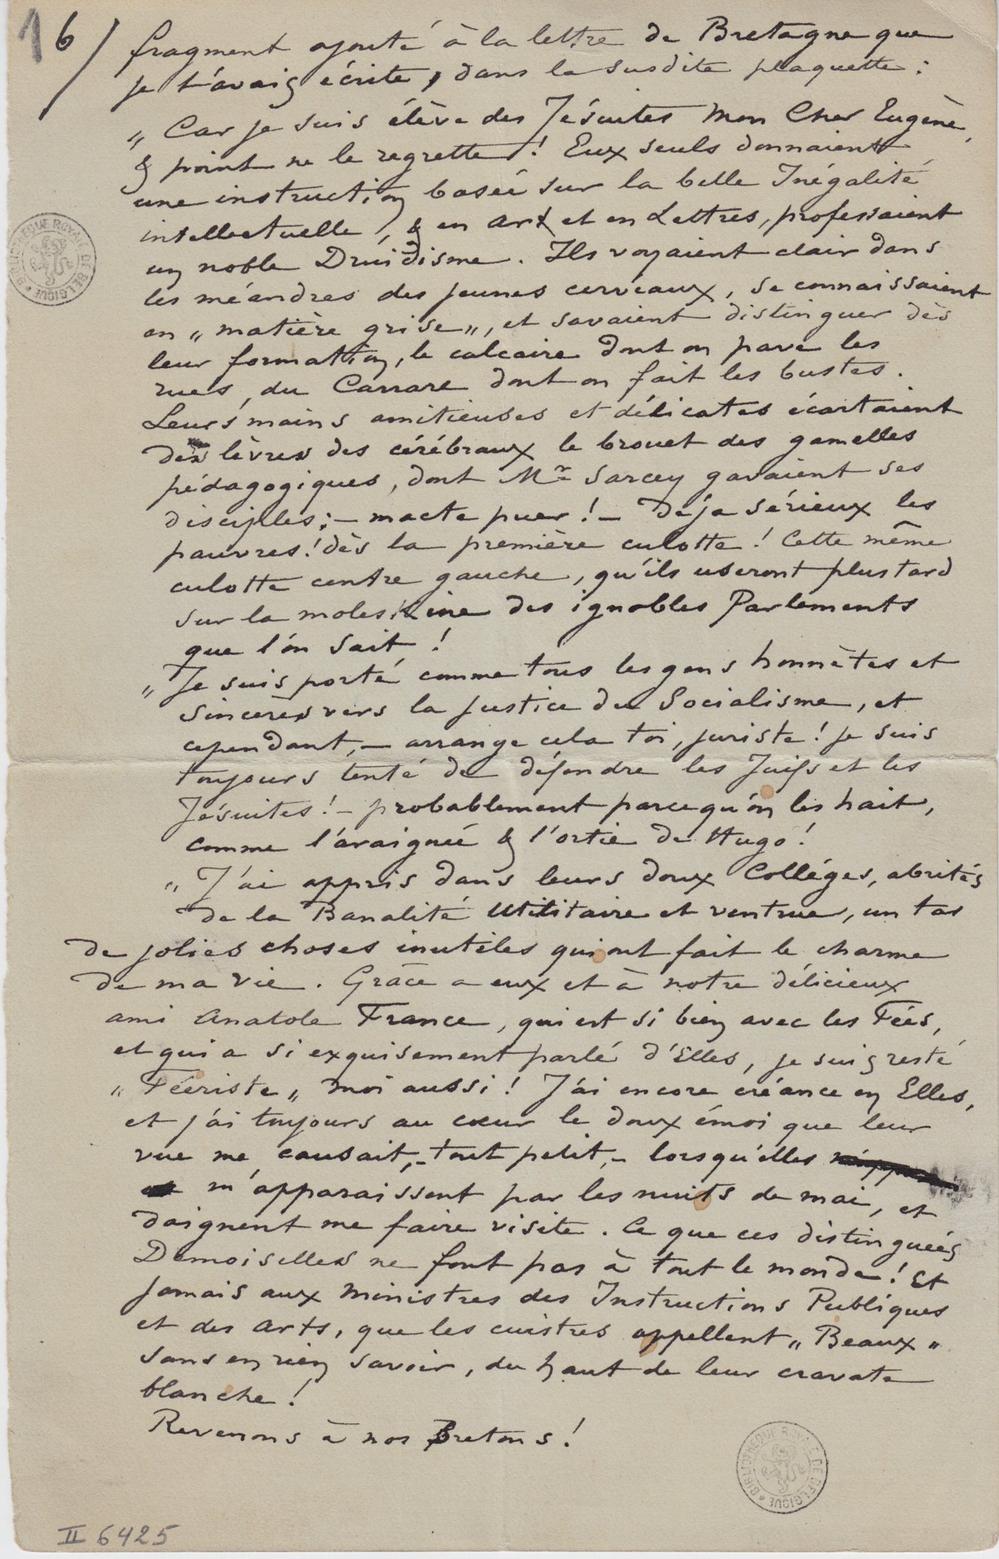 16/
fragment ajouté à la lettre de Bretagne que
je t'avais écrite, dans la susdite plaquette :
„ Car je suis élève des Jésuites mon Cher Eugène,
& point ne le regrette ! Eux seuls donnaient
une instruction basée sur la belle Inégalité
intellectuelle, & en Art et en Lettres, professaient
un noble Druidisme. Ils voyaient clair dans
les méandres des jeunes cerveaux, se connaissaient
en „ matière grise „, et savaient distinguer dès
leur formation, le calcaire dont on pave les
rues, du Carrare dont on fait les bustes.
Leurs mains amitieuses et délicates écartaient
des lèvres des cérébraux le brouet des gamelles
pédagogiques, dont Mr Sarcey gavaient ses
disciples ; – macte puer ! – Déja sérieux les
pauvres ! dès la première culotte ! Cette même
culotte centre gauche, qu'ils useront plus tard
sur la moleskine des ignobles Parlements
que l'on sait !
„ Je suis porté comme tous les gens honnêtes et
sincères vers la justice du Socialisme, et
cependant, – arrange cela toi, juriste ! je suis
toujours tenté de défendre les Juifs et les
Jésuites ! – probablement parcequ'on les hait,
comme l'araignée & l'ortie de Hugo !
„ J'ai appris dans leurs doux Collèges, abrités
de la Banalité utilitaire et ventrue, un tas
de jolies choses inutiles qui ont fait le charme
de ma vie. Grâce a eux et à notre délicieux
ami Anatole France, qui est si bien avec les Fées,
et qui a si exquisement parlé d'Elles, je suis resté
„ Féeriste „ moi aussi ! J'ai encore créance en Elles,
et j'ai toujours au cœur le doux émoi que leur
vue me causait, – tout petit, – lorsqu'elles
m'apparaissent par les nuits de mai, et
daignent me faire visite. Ce que ces distinguées
Demoiselles ne font pas à tout le monde ! Et
jamais aux Ministres des Instructions Publiques
et des Arts, que les cuistres appellent „ Beaux „
sans en rien savoir, du haut de leur cravate
blanche !
Revenons à nos Bretons !
BIBLIOTHÈQUE ROYALE DE BELGIQUE
BIBLIOTHÈQUE ROYALE DE BELGIQUE
II 6425